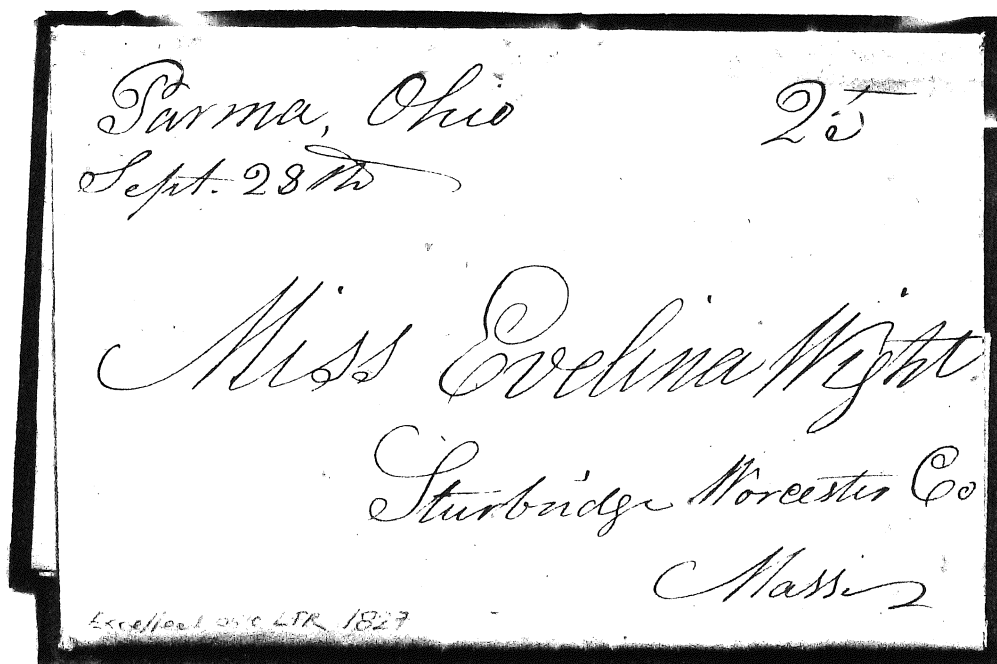 Parma, Ohio 25
Sept. 28th
Miss Evelina Wight
Sturbridge Worcester Co
Mass
Excellent LTR 1827